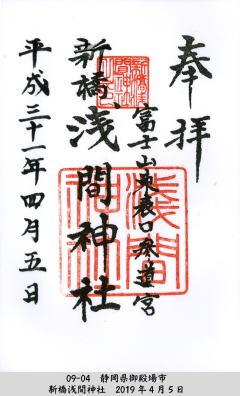 奉拝
富士山東表口登道宮
新橋浅間神社
平成三十一年四月五日
浅間神社
09-04 静岡県御殿場市
新橋浅間神社 2019年4月5日